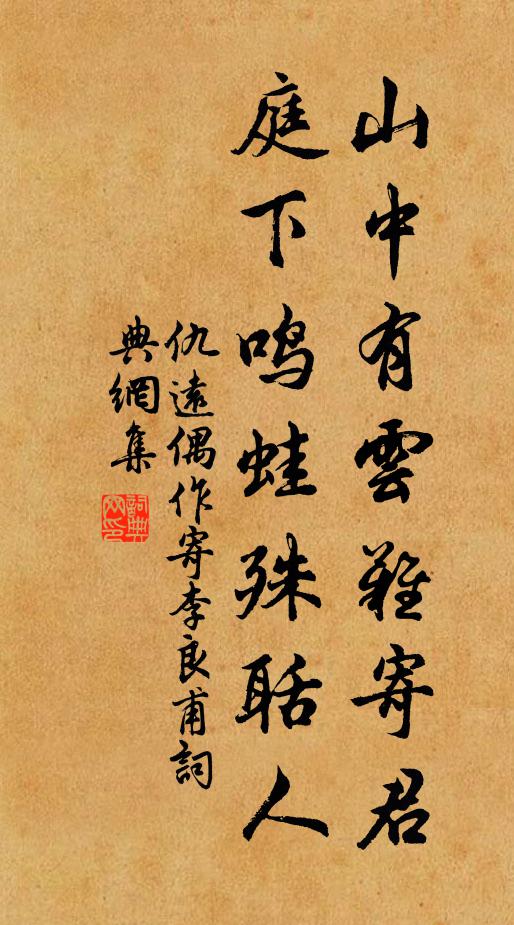 山中有雲難寄君
庭下鸣蛙殊聒人
仇遠偶作寄李良甫詞
典網集
詞典網印